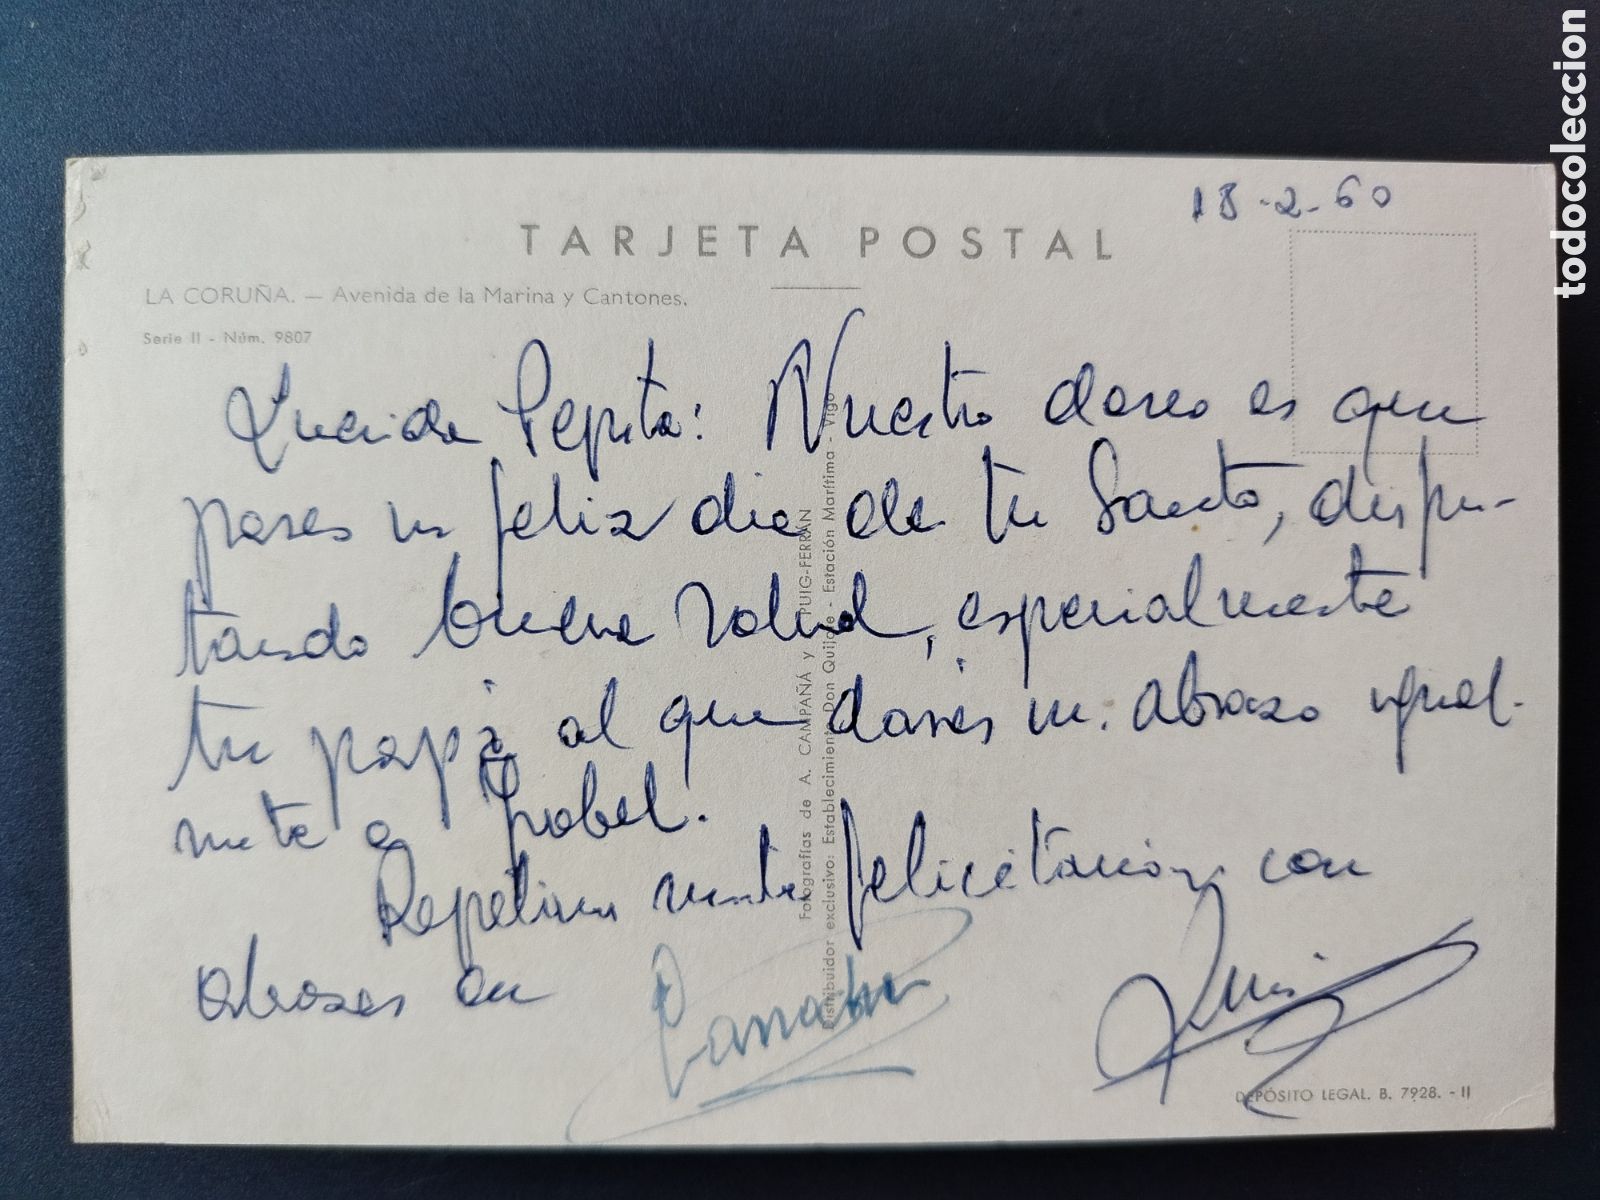 18-2-60
TARJETA POSTAL
LA CORUÑA. — Avenida de la Marina y Cantones.
Serie II - Núm. 9807
Querida Pepita: Nuestro deseo es que
pases un feliz dia de tu Santo, disfru-
tando buena salud, especialmente
tu papá al que daras un abrazo igual-
mente a Isabel.
Repetimos nuestra felicitación con
abrazos en
Luis
Fotografías de A. CAMPAÑÁ y PUIG-FERRÁN
Distribuidor exclusivo: Establecimiento Don Quijote - Estación Marítima - Vigo
DEPÓSITO LEGAL. B. 7928. - II
todocoleccion